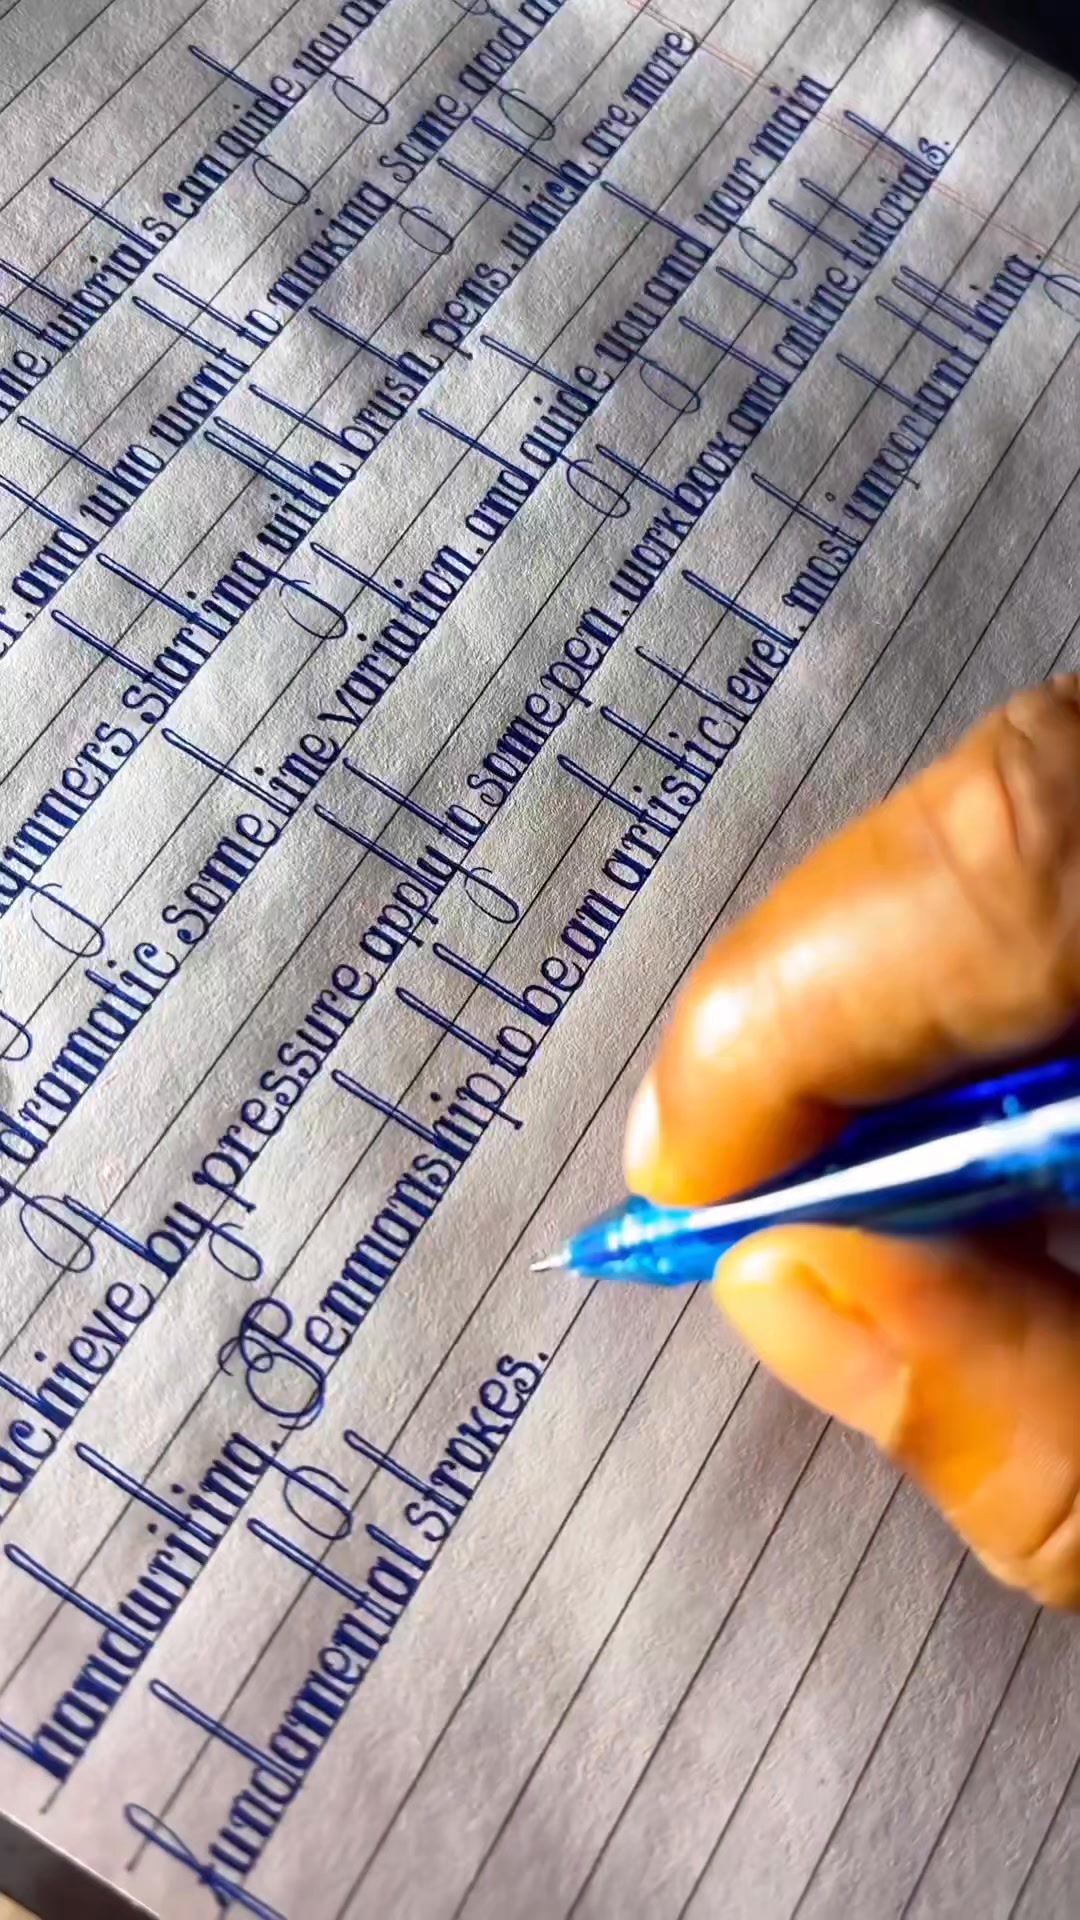 ne tutorials can guide you
and who want to making some good
starting with brush pens. which are more
dramatic some line variation. and guide you and your main
achieve by pressure apply to some pen. workbook and online tutorials.
handwriting. Penmanship to be an artistic level. most important thing.
fundamental strokes.